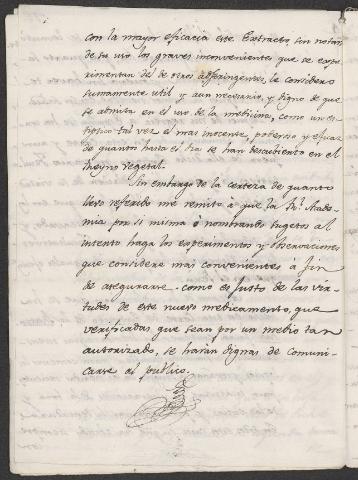 con la mayor eficacia este Extracto, sin notar
de su uso los graves inconvenientes que se expe
rimentan del de otros adstringentes, le considero
sumamente util y aun necesario, y digno de que
se admita en el uso de la medicina, como un es
tiptico tal vez el mas inocente, poderoso y eficaz
de quantos hasta el dia se han descubierto en el
Reyno Vegetal.
Sin embargo de la certeza de quanto
llevo referido me remito à que la Rl. Acade
mia por si misma ò nombrando sugetos al
intento haga los experimentos y observaciones
que considere mas convenientes à fin
de asegurarse como es justo de las vir
tudes de este nuevo medicamento, que
verificadas que sean por un medio tan
autorizado, se haràn dignas de comuni
carse al publico.